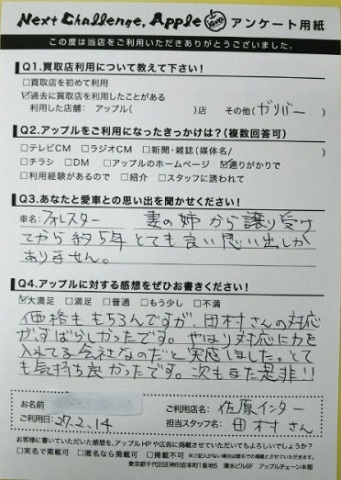 Next Challenge, Apple アンケート用紙
この度は当店をご利用いただきありがとうございました。
Q1.買取店利用について教えて下さい!
□買取店を初めて利用
☑過去に買取店を利用したことがある
利用した店舗: アップル( )店 その他(ガリバー )
Q2.アップルをご利用になったきっかけは?(複数回答可)
□テレビCM □ラジオCM □新聞・雑誌(媒体名/ )
□チラシ □DM □アップルのホームページ ☑通りがかりで
□利用経験があるので □紹介 □スタッフに誘われて
Q3.あなたと愛車との思い出を聞かせください!
車名:フォレスター 妻の姉から譲り受け
てから約5年とても良い思い出しか
ありません。
Q4.アップルに対する感想をぜひお書きください!
☑大満足 □満足 □普通 □もう少し □不満
価格ももちろんですが、田村さんの対応
がすばらしかったです。やはり対応に力を
入れてる会社なのだと実感しました。とて
も気持ち良かったです。次もまた是非!!
お名前
ご利用店名: 佐原インター
ご利用日: 27.2.14
担当スタッフ名: 田村さん
お客様に書いていただいた感想を、アップルHPや広告に掲載させていただいてもよろしいでしょうか?
□実名で掲載可 □匿名なら掲載可 □掲載不可 ※ご記入がない場合は匿名での掲載とさせていただきます。
東京都千代田区神田岩本町1番地5 清水ビル6F アップルチェーン本部